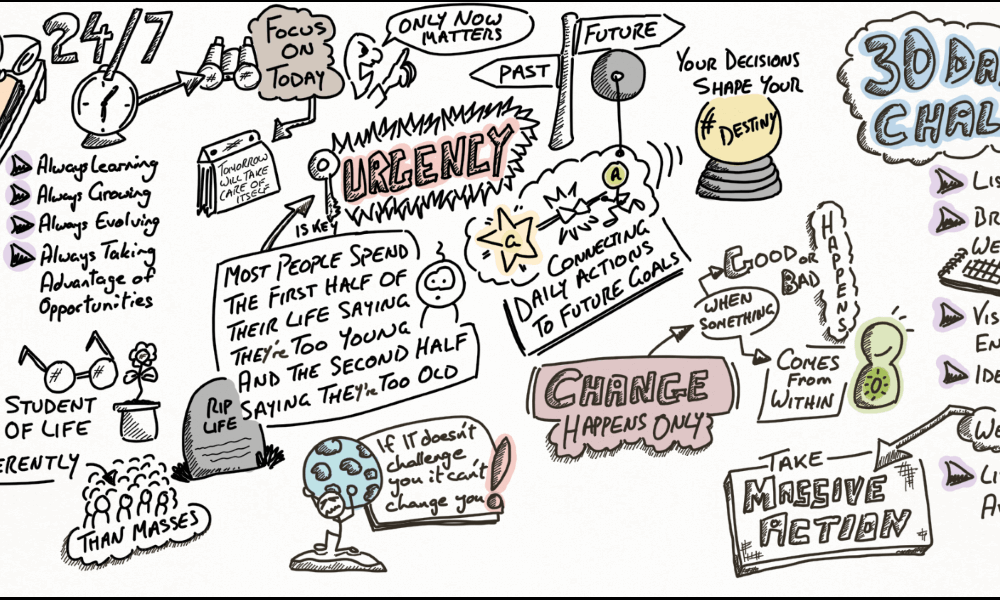 24/7
Always Learning
Always Growing
Always Evolving
Always Taking
Advantage of
Opportunities
STUDENT
OF LIFE
ERENTLY
THAN MASSES
FOCUS
ON
TODAY
TOMORROW
WILL TAKE
CARE OF
ITSELF
ONLY NOW
MATTERS
URGENCY
IS KEY
MOST PEOPLE SPEND
THE FIRST HALF OF
THEIR LIFE SAYING
THEY're TOO YOUNG
AND THE SECOND HALF
SAYING THEY're TOO OLD
RIP
LIFE
If IT doesn't
challenge
you it can't
change you!
FUTURE
PAST
A
G
CONNECTING
DAILY ACTIONS
TO FUTURE GOALS
YOUR DECISIONS
SHAPE YOUR
# DESTINY
CHANGE
HAPPENS ONLY
WHEN
SOMETHING
GOOD OR
BAD
HAPPENS
COMES
From
WITHIN
30 DA
CHAL
LIS
BR
WE
VIS
EN
IDE
WE
LI
AV
TAKE
MASSIVE
ACTION